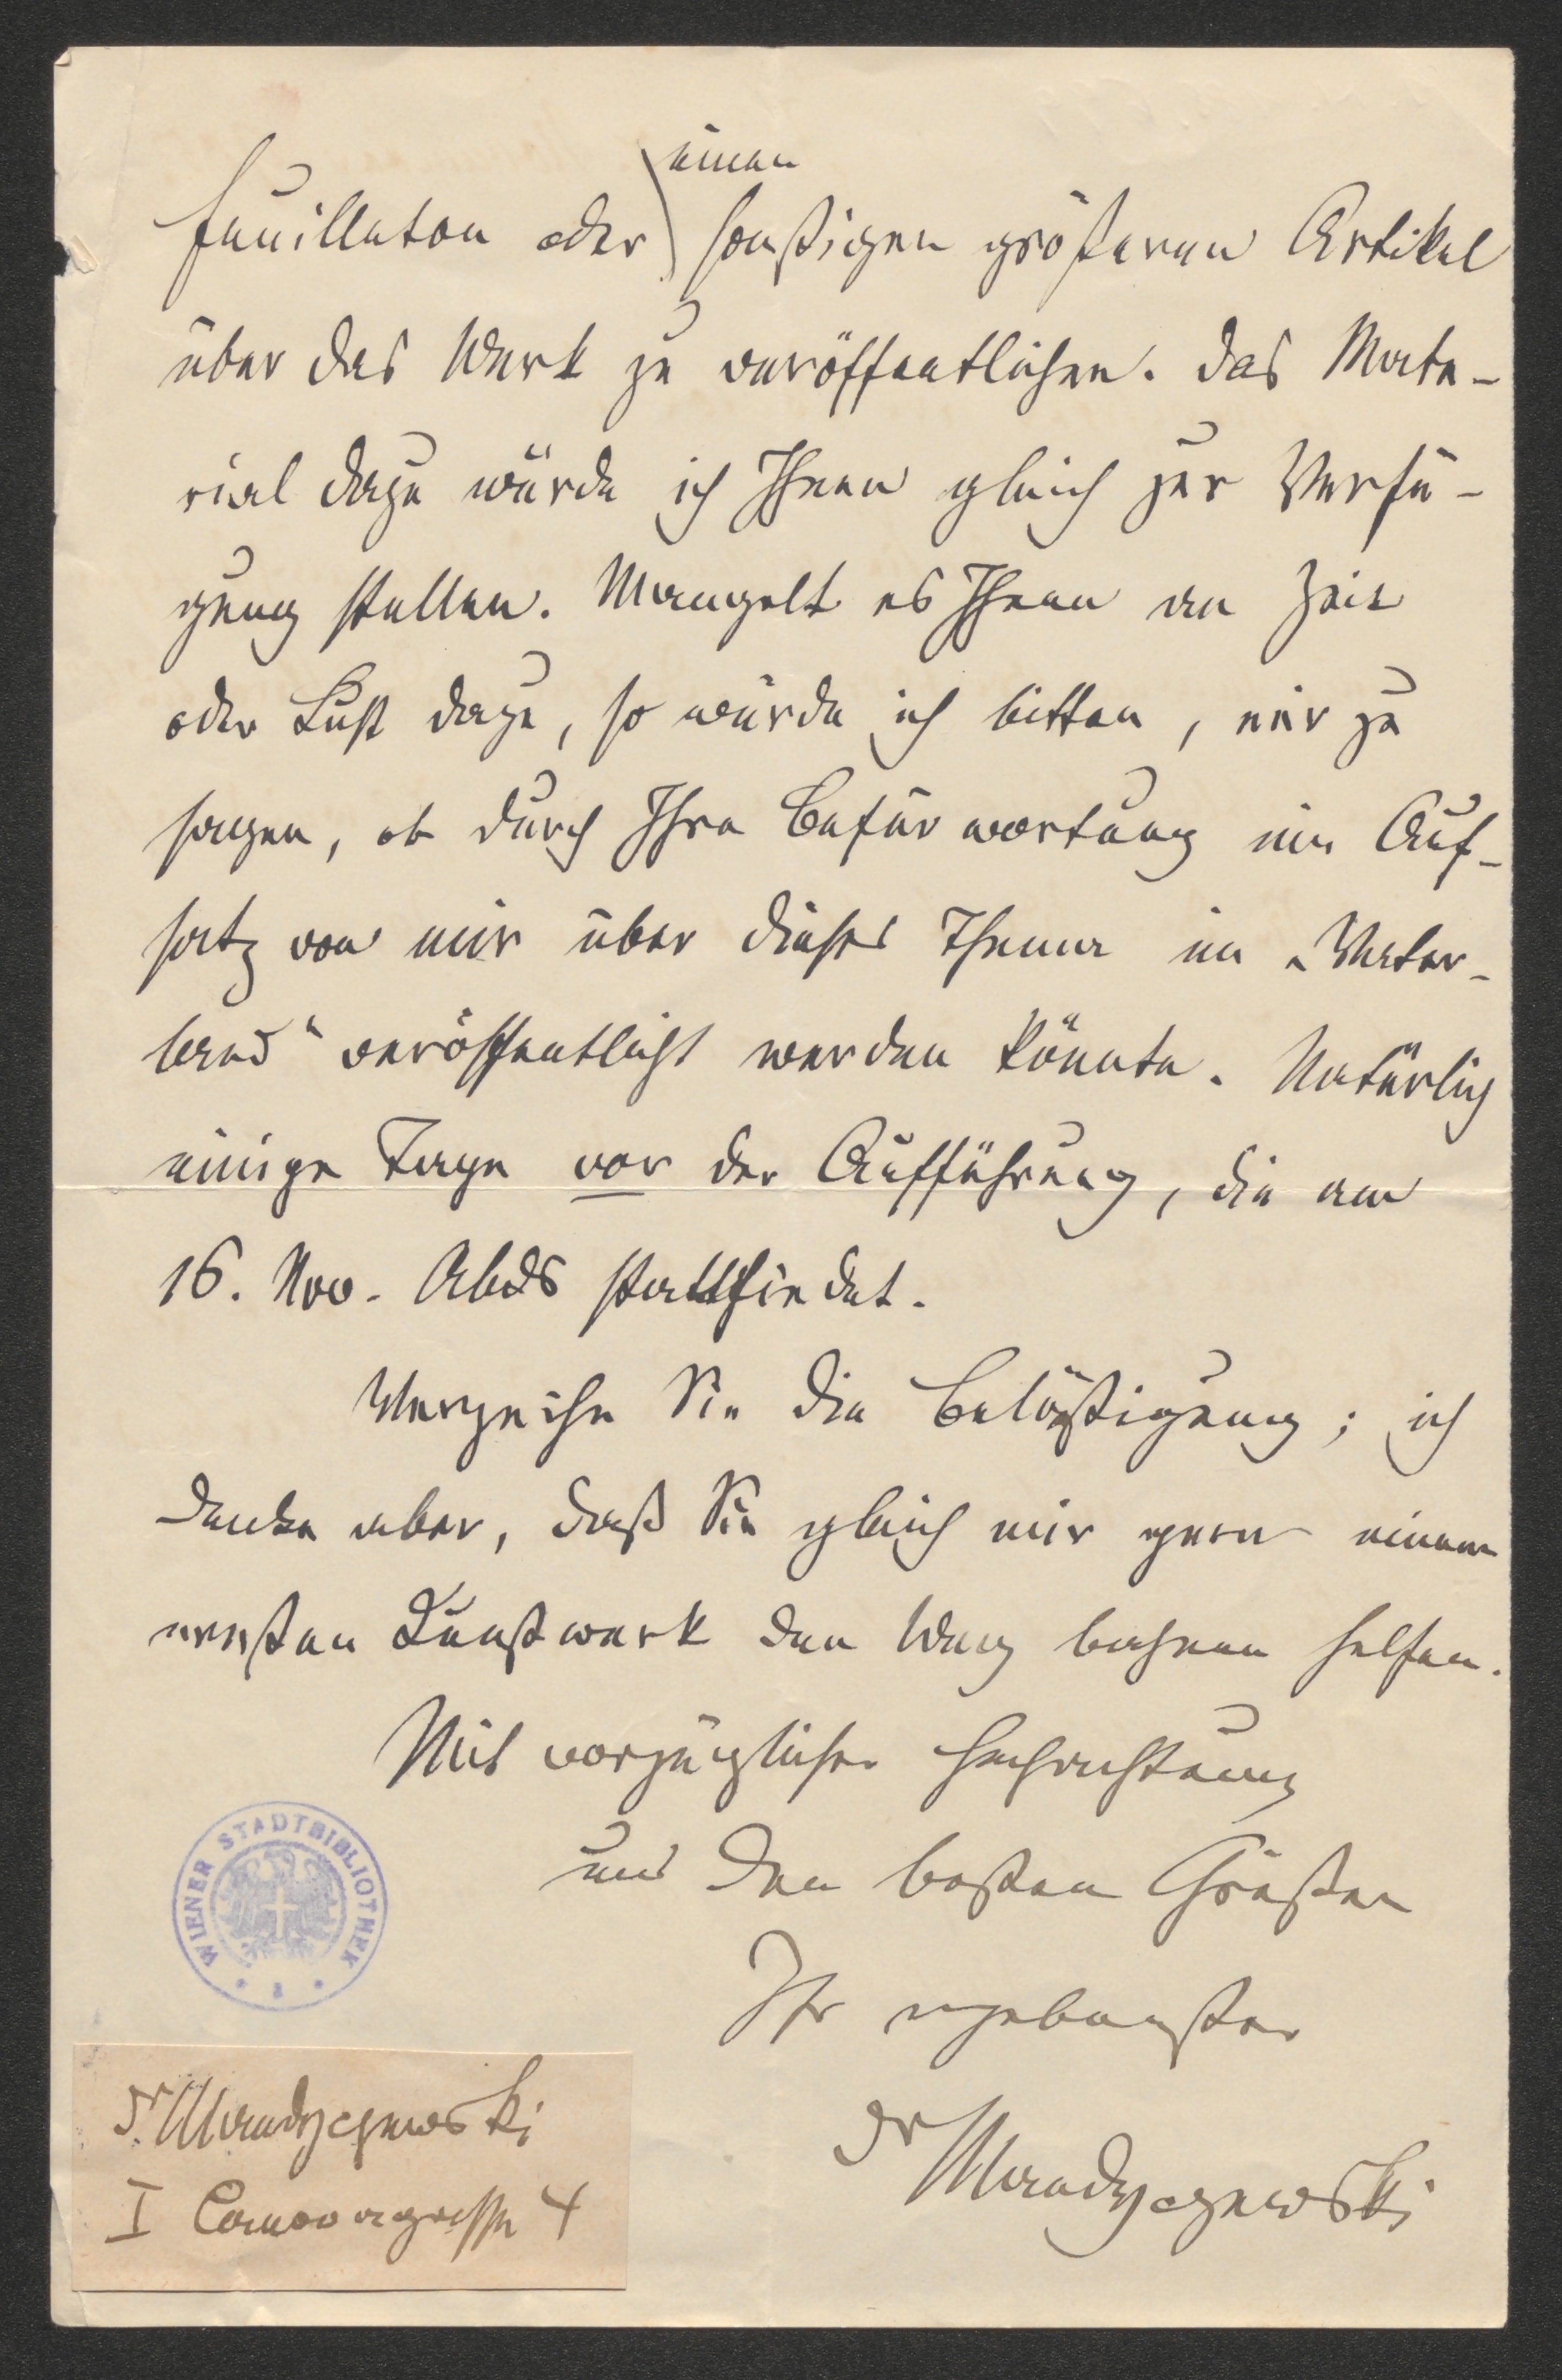 einen
Feuilleton oder sonstigen größeren Artikel
über das Werk zu veröffentlichen. Das Mate-
rial dazu würde ich Ihnen gleich zur Verfü-
gung stellen. Mangelt es Ihnen an Zeit
oder Lust dazu, so würde ich bitten, mir zu
sagen, ob durch Ihre Befürwortung ein Auf-
satz von mir über dieses Thema im „Vater-
land“ veröffentlicht werden könnte. Natürlich
einige Tage vor der Aufführung, die am
16. Nov. Abds stattfindet.
Verzeihn Sie die Belästigung; ich
denke aber, daß Sie gleich mir gern einem
ernsten Kunstwerk den Weg bahnen helfen.
Mit vorzüglicher Hochachtung
und den besten Grüßen
Ihr ergebenster
Dr Mandyczewski
WIENER STADTBIBLIOTHEK
Dr. Mandyczewski
I Canovagasse 4